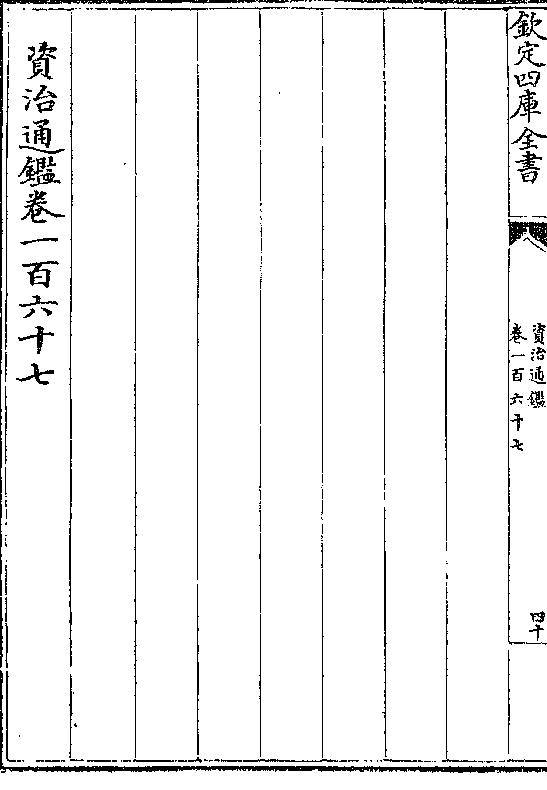 欽定四庫全書
資治通鑑
卷一百六十七
四十
資治通鑑卷一百六十七